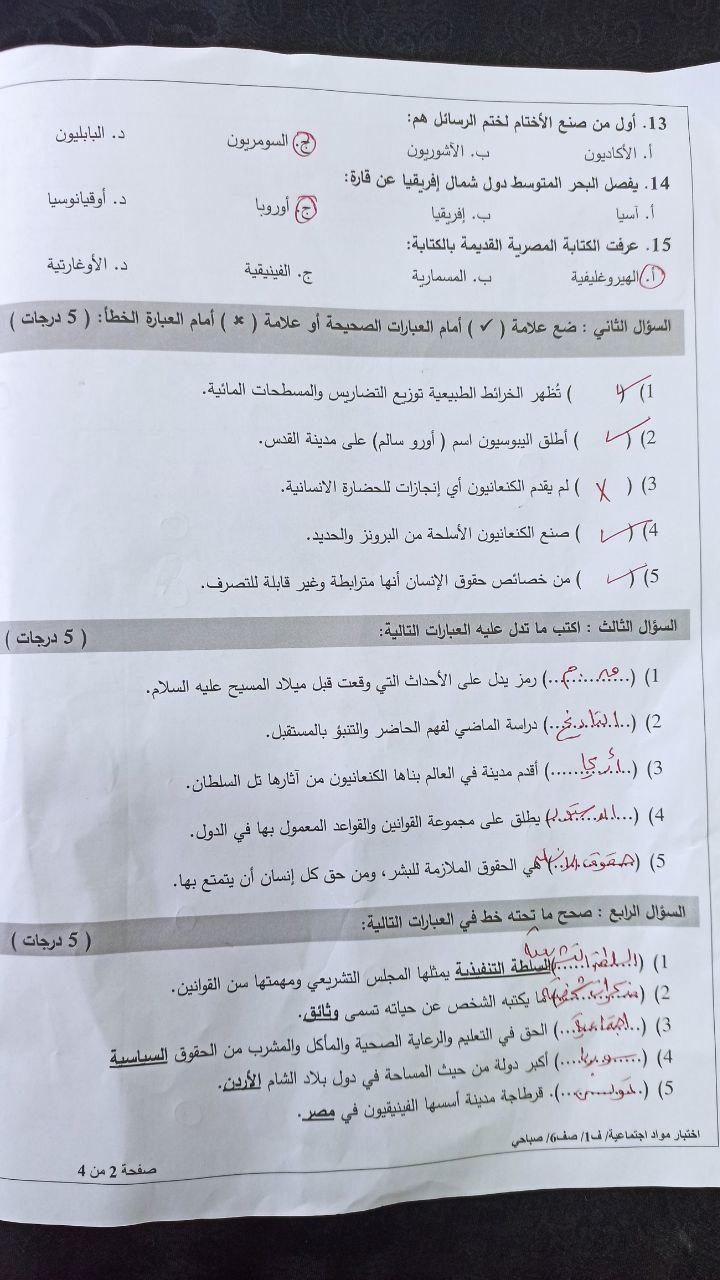 13. أول من صنع الأختام لختم الرسائل هم:
أ. الأكاديون ب. الآشوريون ج. السومريون د. البابليون
14. يفصل البحر المتوسط دول شمال إفريقيا عن قارة:
أ. آسيا ب. إفريقيا ج. أوروبا د. أوقيانوسيا
15. عرفت الكتابة المصرية القديمة بالكتابة:
أ. الهيروغليفية ب. المسمارية ج. الفينيقية د. الأوغارتية
السؤال الثاني : ضع علامة ( ✓ ) أمام العبارات الصحيحة أو علامة ( × ) أمام العبارة الخطأ: ( 5 درجات )
1) ( ✓ ) تُظهر الخرائط الطبيعية توزيع التضاريس والمسطحات المائية.
2) ( ✓ ) أطلق اليبوسيون اسم ( أورو سالم) على مدينة القدس.
3) ( X ) لم يقدم الكنعانيون أي إنجازات للحضارة الانسانية.
4) ( ✓ ) صنع الكنعانيون الأسلحة من البرونز والحديد.
5) ( ✓ ) من خصائص حقوق الإنسان أنها مترابطة وغير قابلة للتصرف.
السؤال الثالث : اكتب ما تدل عليه العبارات التالية: ( 5 درجات )
1) (......) رمز يدل على الأحداث التي وقعت قبل ميلاد المسيح عليه السلام.
2) (التاريخ) دراسة الماضي لفهم الحاضر والتنبؤ بالمستقبل.
3) (أريحا) أقدم مدينة في العالم بناها الكنعانيون من آثارها تل السلطان.
4) (الدستور) يطلق على مجموعة القوانين والقواعد المعمول بها في الدول.
5) (حقوق الإنسان) هي الحقوق الملازمة للبشر، ومن حق كل إنسان أن يتمتع بها.
السؤال الرابع : صحح ما تحته خط في العبارات التالية: ( 5 درجات )
1) (السلطة التشريعية) السلطة التنفيذية يمثلها المجلس التشريعي ومهمتها سن القوانين.
2) (مذكرات شخصية) ما يكتبه الشخص عن حياته تسمى وثائق.
3) (اجتماعية) الحق في التعليم والرعاية الصحية والمأكل والمشرب من الحقوق السياسية
4) (سوريا) أكبر دولة من حيث المساحة في دول بلاد الشام الأردن.
5) (تونس). قرطاجة مدينة أسسها الفينيقيون في مصر.
اختبار مواد اجتماعية/ ف1/ صف6/ صباحي
صفحة 2 من 4